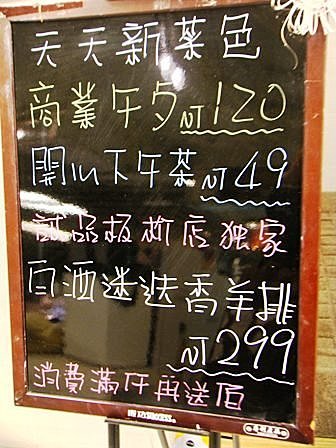 天天新菜色
商業午夕NT120
開心下午茶NT49
誠品板新店独家
白酒迷迭香羊排
NT299
消費滿仟再送佰